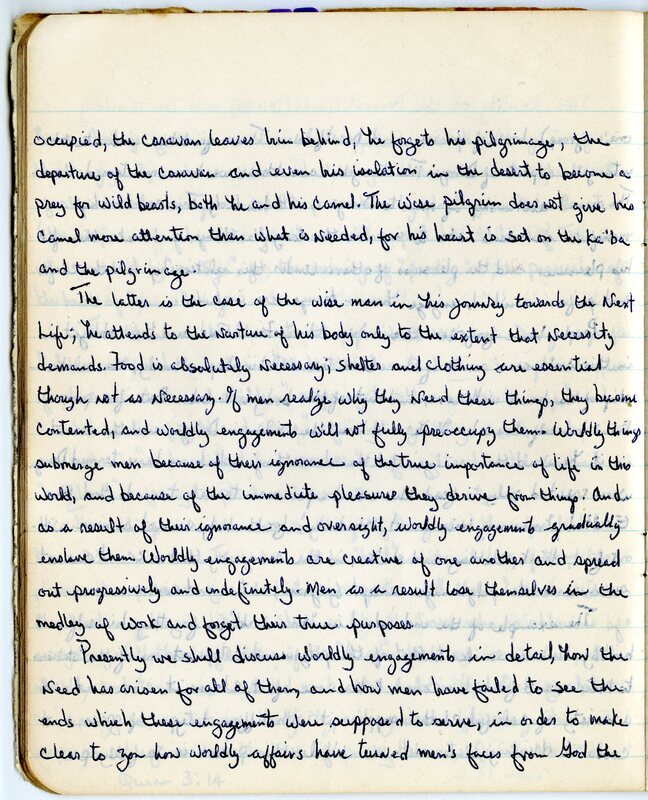 occupied, the caravan leaves him behind; he forgets his pilgrimage, the
departure of the caravan and even his isolation in the desert, to become a
prey for wild beasts, both he and his camel. The wise pilgrim does not give his
camel more attention than what is needed, for his heart is set on the Ka'ba
and the pilgrimage.
The latter is the case of the wise man in his journey towards the Next
Life; he attends to the nurture of his body only to the extent that necessity
demands. Food is absolutely necessary; shelter and clothing are essential
though not as necessary. If men realize why they need these things, they become
contented, and worldly engagements will not fully preoccupy them. Worldly things
submerge men because of their ignorance of the true importance of life in this
world, and because of the immediate pleasures they derive from things. And
as a result of their ignorance and oversight, worldly engagements gradually
enslave them. Worldly engagements are creative of one another and spread
out progressively and indefinitely. Men as a result lose themselves in the
medley of work and forget their true purposes.
Presently we shall discuss worldly engagements in detail, how the
need has arisen for all of them, and how men have failed to see the
ends which these engagements were supposed to serve, in order to make
clear to you how worldly affairs have turned men's faces from God the
Quran 3:14